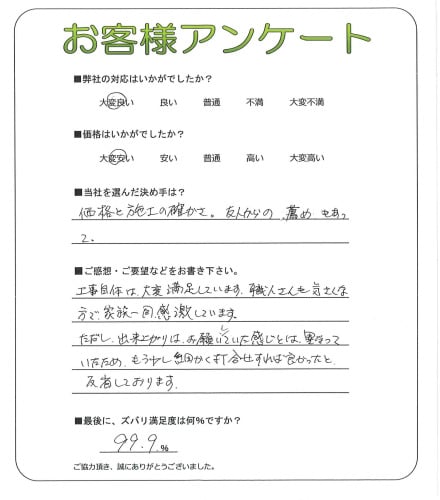 お客様アンケート
■弊社の対応はいかがでしたか?
大変良い 良い 普通 不満 大変不満
■価格はいかがでしたか?
大変安い 安い 普通 高い 大変高い
■当社を選んだ決め手は?
価格と施工の確かさ。友人からの薦めもあっ
て。
■ご感想・ご要望などをお書き下さい。
工事自体は、大変満足しています。職人さんも気さくな
方で、家族一同感激しています。
ただし、出来上がりは、お願いしていた感じとは、異なって
いたため、もう少し細かく打合せすれば良かったと、
反省しております。
■最後に、ズバリ満足度は何%ですか?
99.9%
ご協力頂き、誠にありがとうございました。